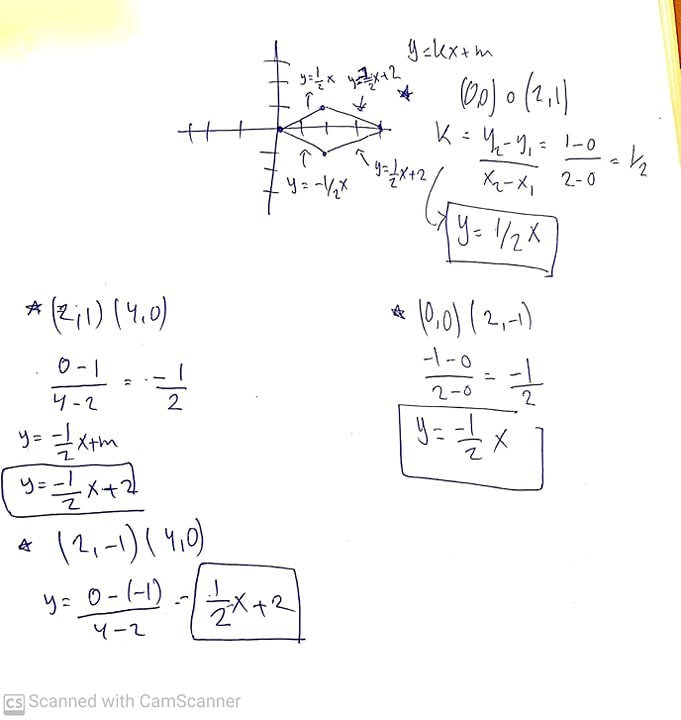 y=kx+m
y=1/2x y=-1/2x+2
(0,0) o (2,1)
K = y₂-y₁ / x₂-x₁ = 1-0 / 2-0 = 1/2
y=-1/2x y=1/2x+2
y=1/2x
* (2,1) (4,0)
0-1 / 4-2 = -1/2
y= -1/2x+m
y= -1/2x+2
* (0,0) (2,-1)
-1-0 / 2-0 = -1/2
y= -1/2x
* (2,-1) (4,0)
y= 0-(-1) / 4-2 = 1/2x+2
CS Scanned with CamScanner